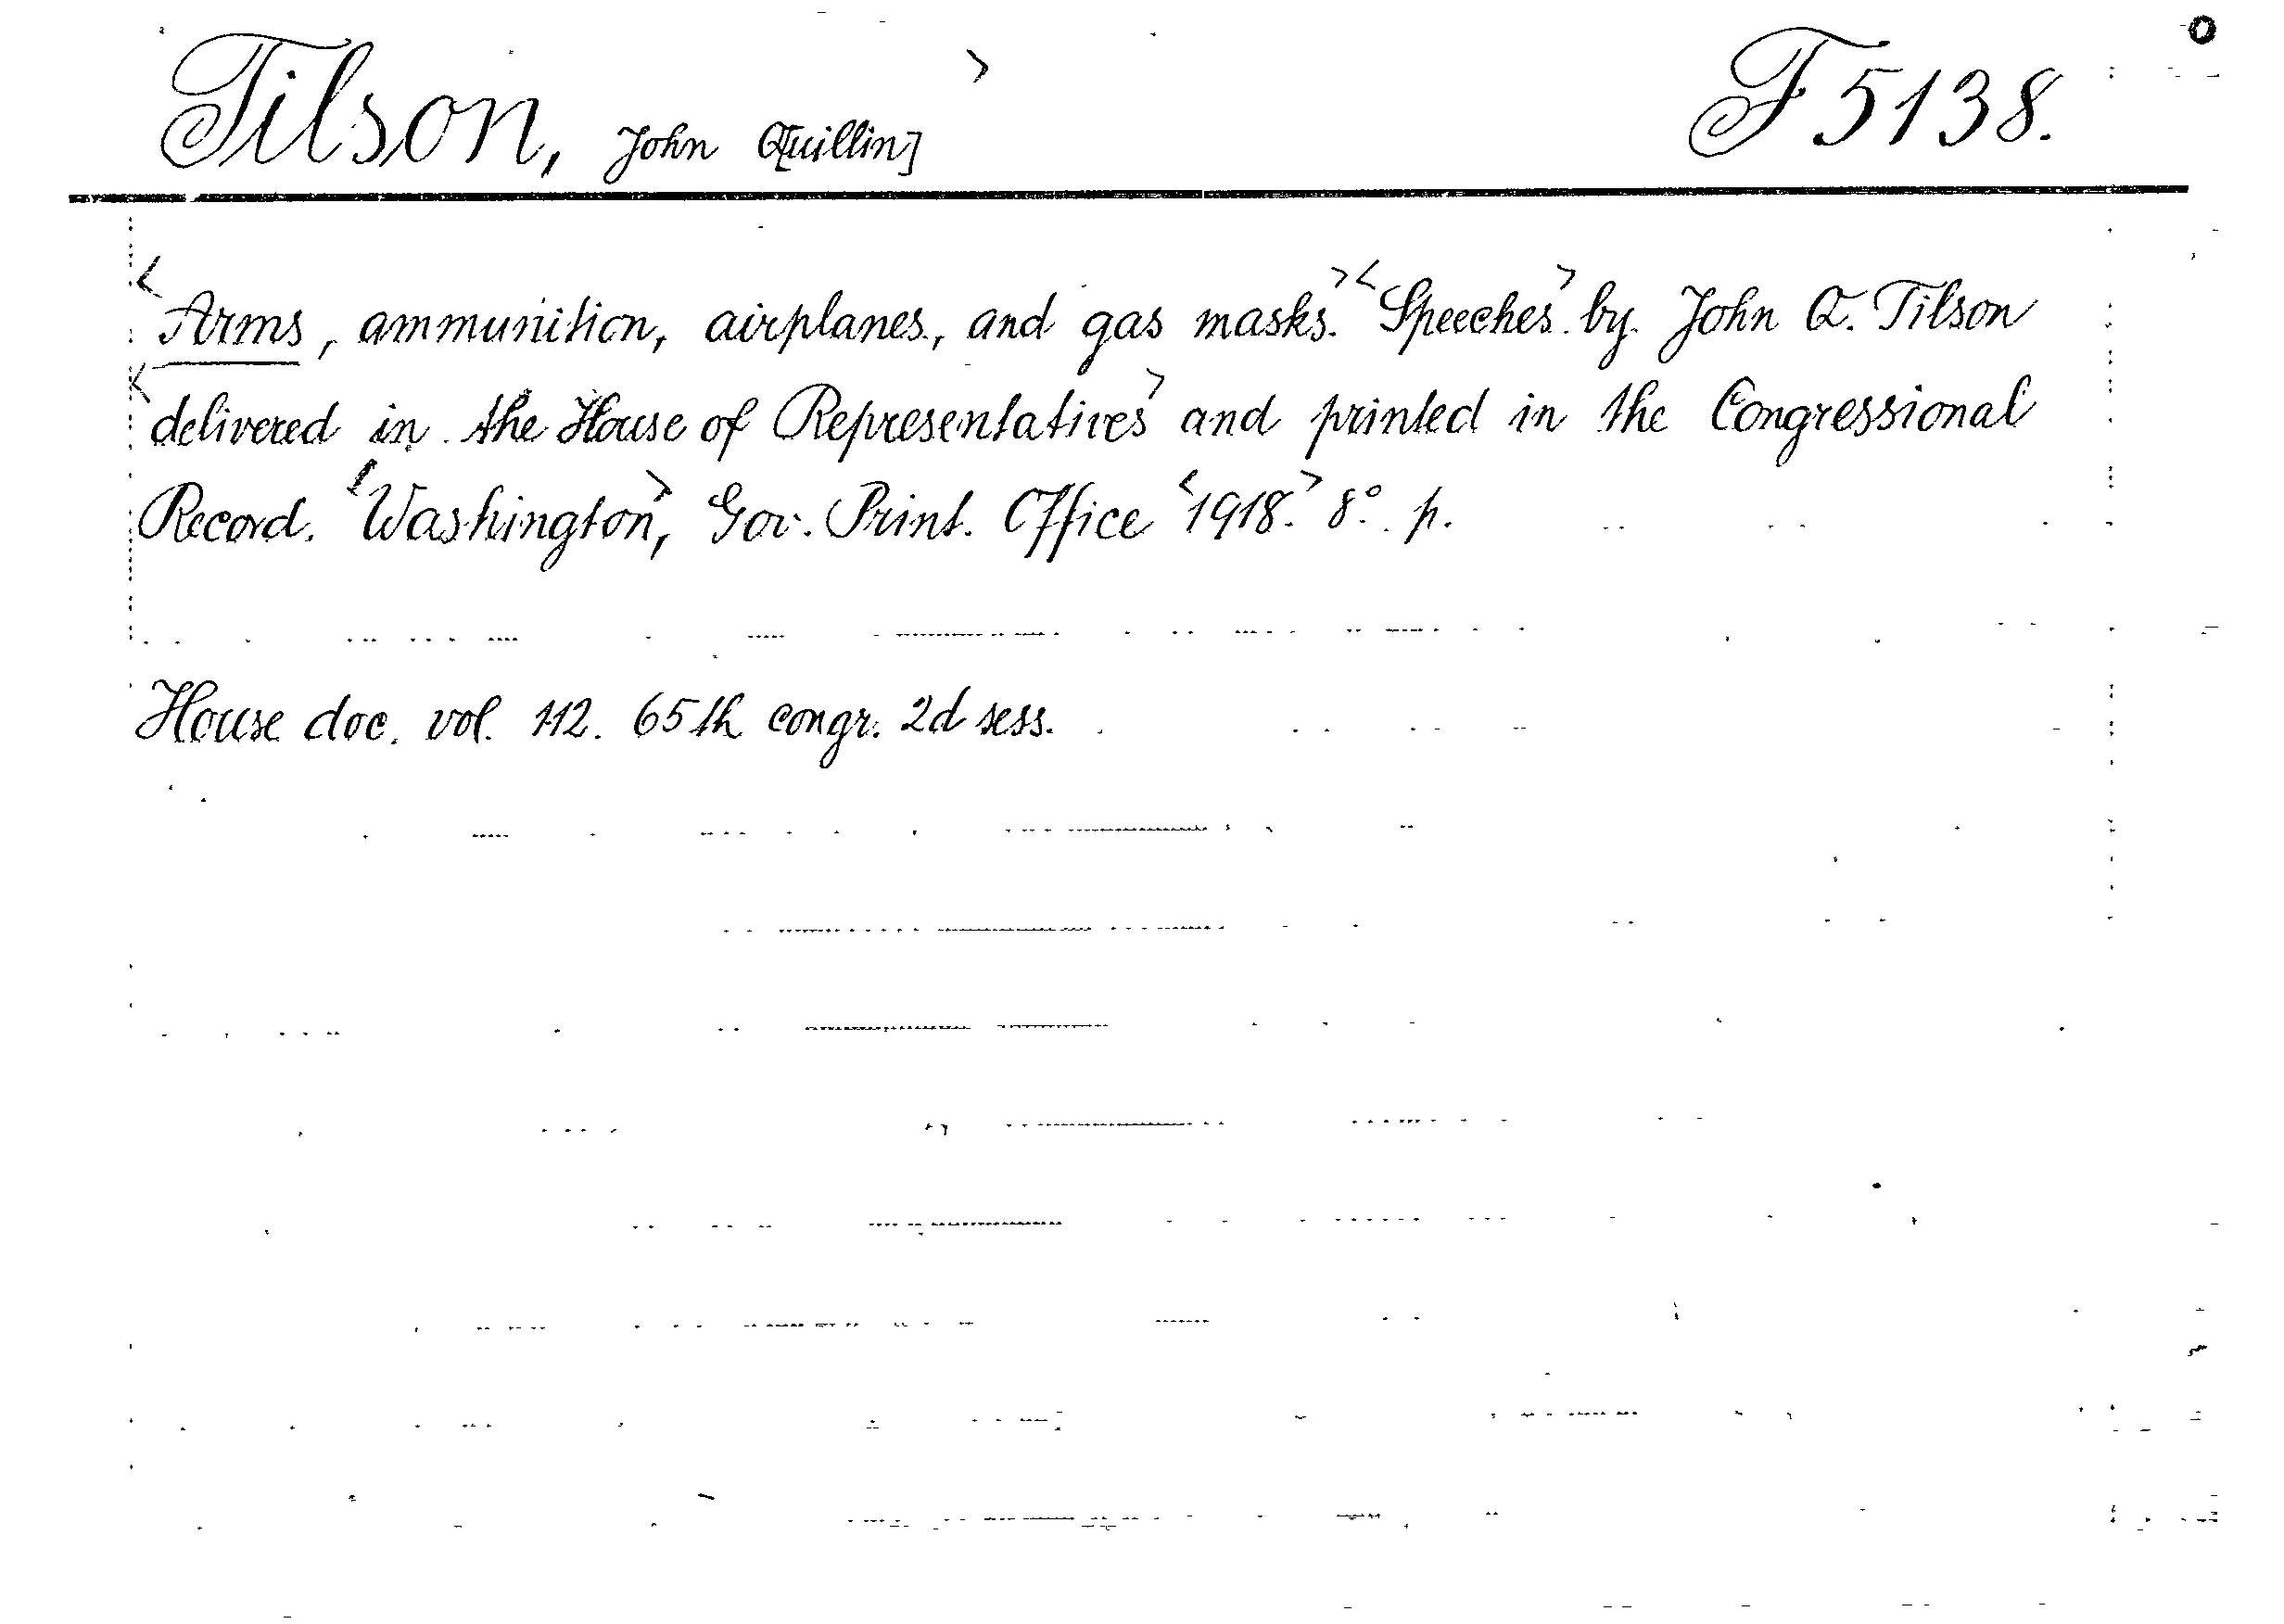 Tilson, John Q[uillin] > F 5138.
<Arms, ammunition, airplanes, and gas masks.> <Speeches> by John Q. Tilson
<delivered in the House of Representatives> and printed in the Congressional
Record. <Washington>, Gov. Print. Office <1918.> 8°. p.
House doc. vol. 112. 65th congr. 2d sess.